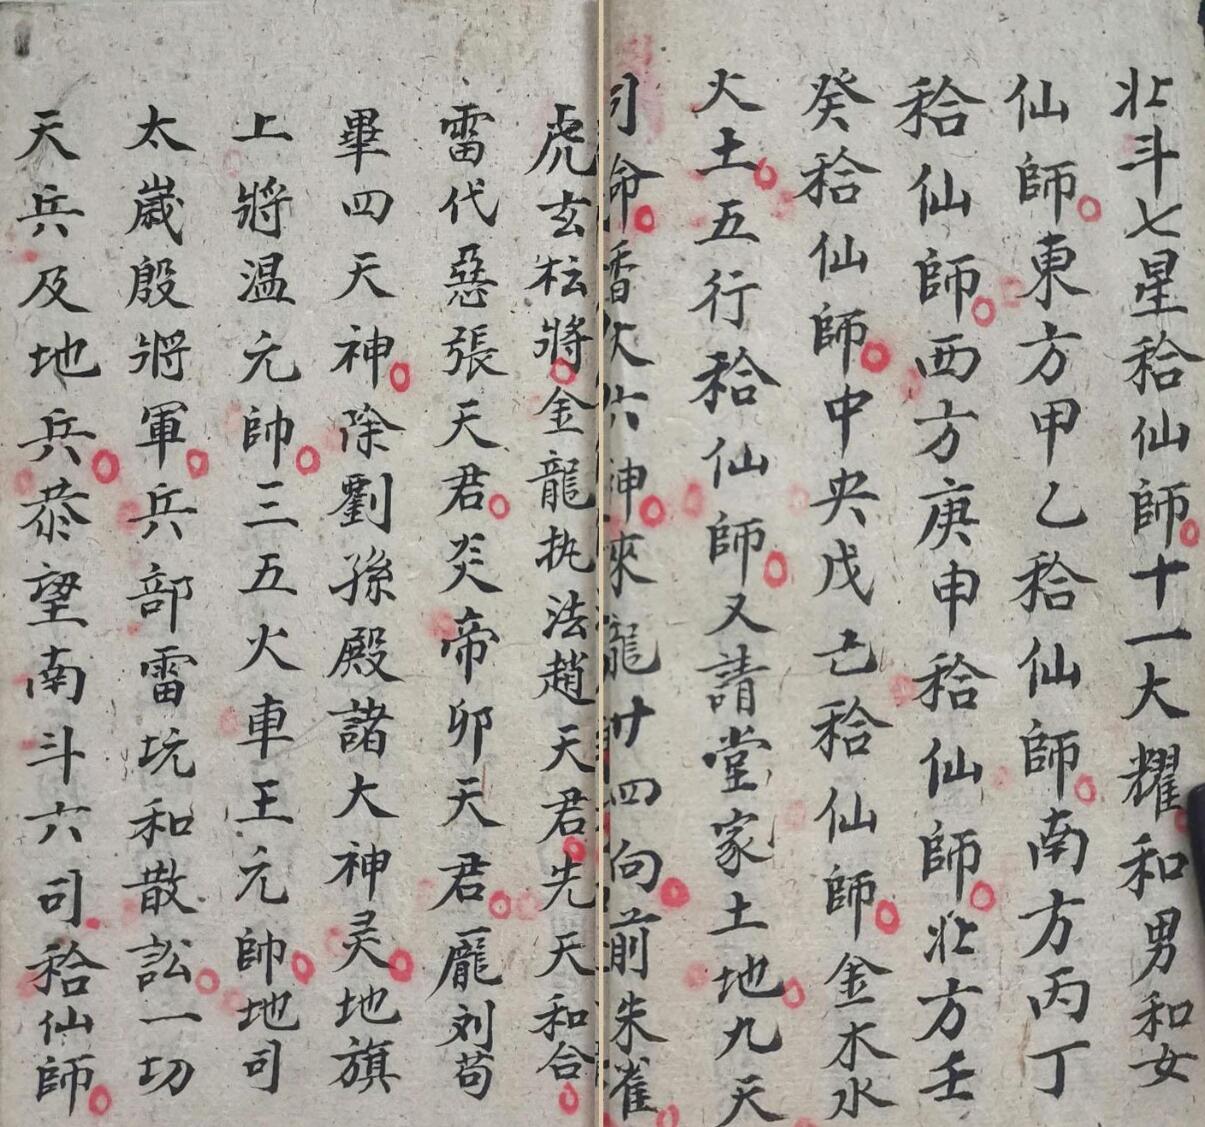 北斗七星秴仙師十一大耀和男和女
仙師東方甲乙秴仙師南方丙丁
秴仙師西方庚申秴仙師北方壬
癸秴仙師中央戊己秴仙師金木水
火土五行秴仙師又請堂家土地九天
司命香火六神來龍廿四向前朱雀
虎玄枟將金龍执法趙天君先天和合
雷代惡張天君炎帝卯天君龐刘苟
畢四天神除劉孫殿諸大神灵地旗
上將温元帥三五火車王元帥地司
太歲殷將軍兵部雷坑和散訟一切
天兵及地兵恭望南斗六司秴仙師